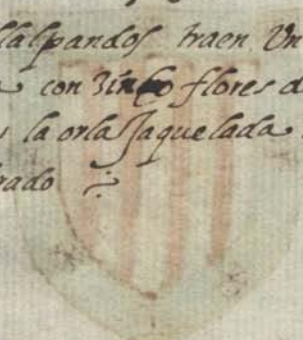 llalpandos traen Vn
con zinco flores d
la orla Jaquelada
rado